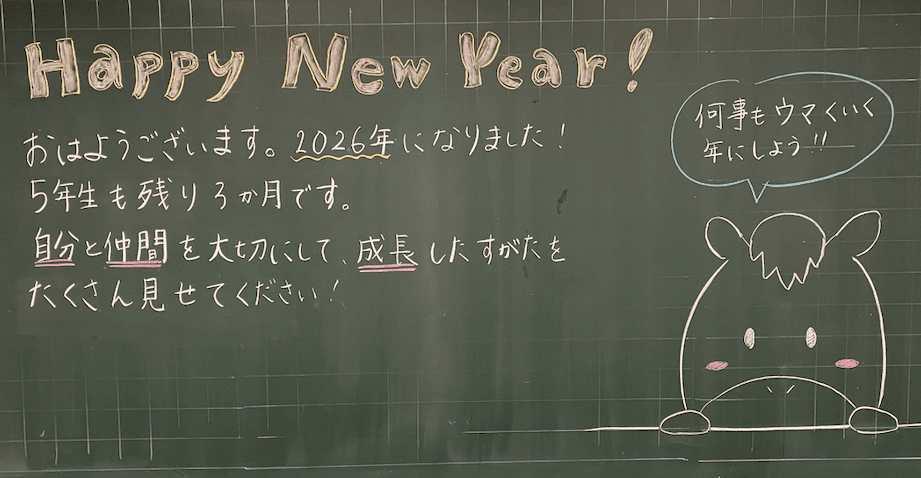 Happy New Year!
おはようございます。2026年になりました!
5年生も残り3か月です。
自分と仲間を大切にして、成長したすがたを
たくさん見せてください!
何事もウマくいく
年にしよう!!